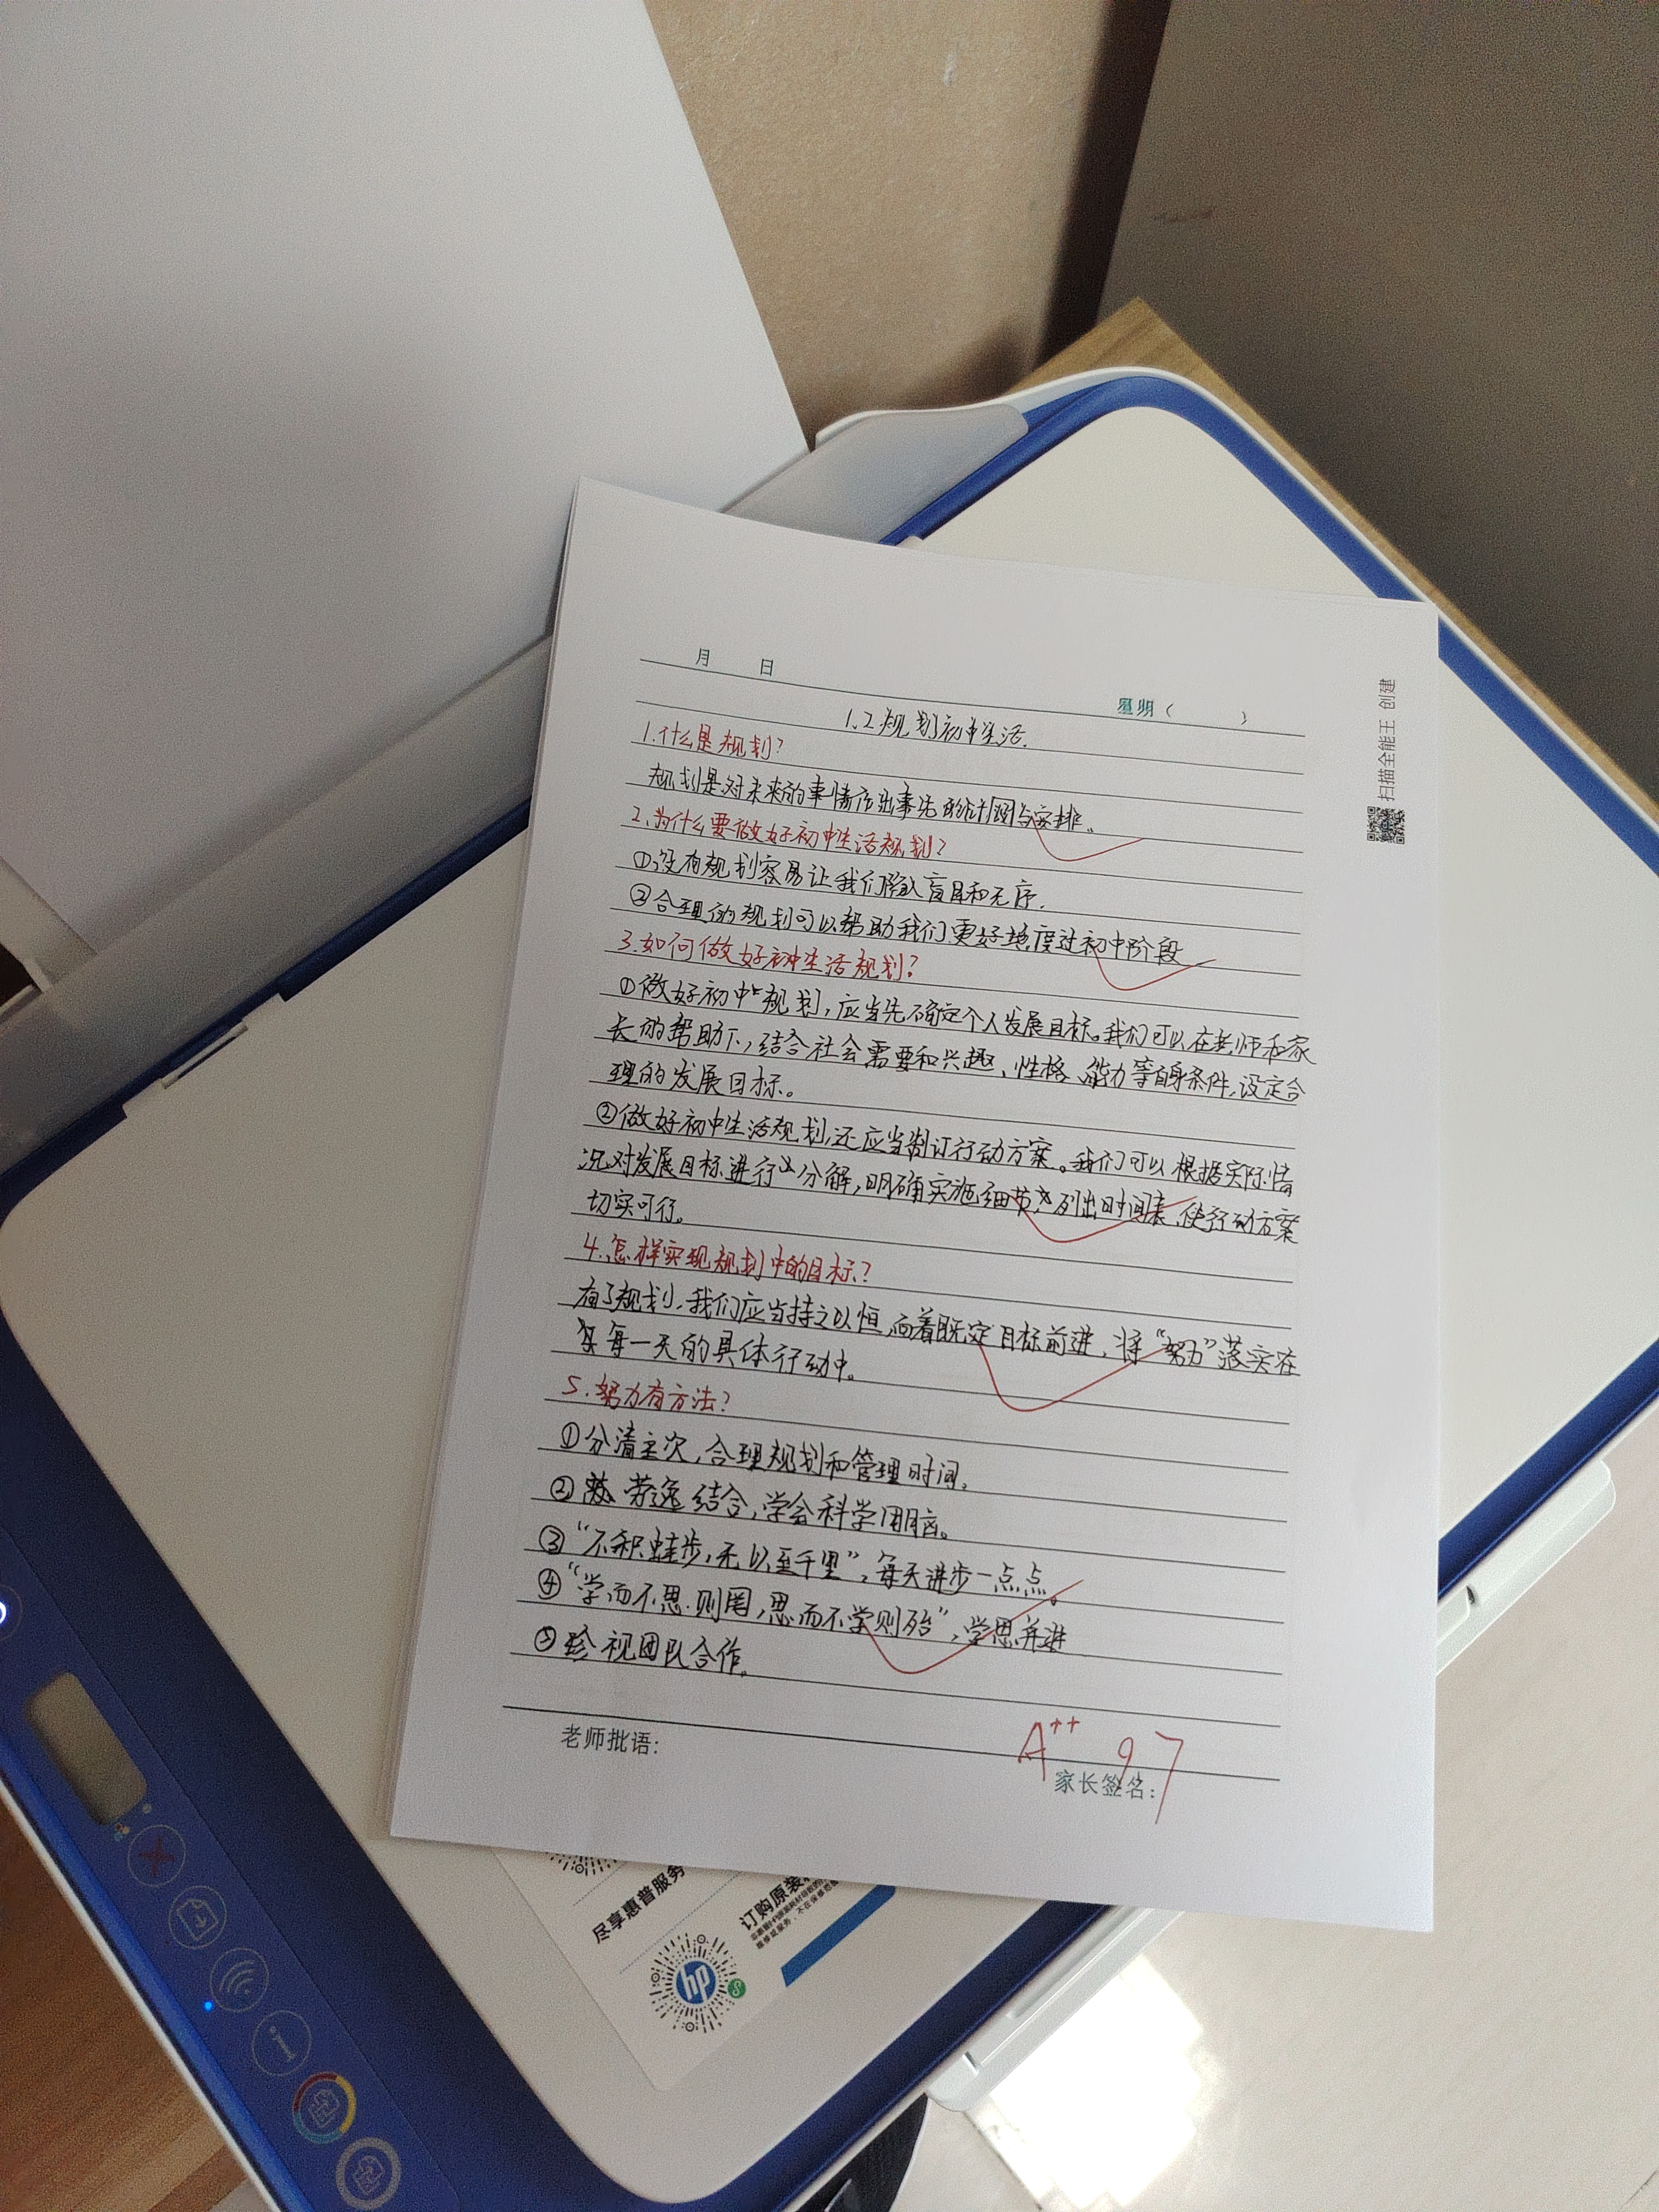 月 日
星期（ ）
1.2规划初中生活.
1.什么是规划?
规划是对未来的事情作出事先的计划与安排。
2.为什么要做好初中生活规划?
①没有规划容易让我们陷入盲目和无序.
②合理的规划可以帮助我们更好地度过初中阶段
3.如何做好初中生活规划?
①做好初中生规划,应当先确定个人发展目标。我们可以在老师和家
长的帮助下,结合社会需要和兴趣、性格、能力等自身条件,设定合
理的发展目标。
②做好初中生活规划,还应当制订行动方案。我们可以根据实际情
况对发展目标进行分解,明确实施细节,列出时间表,使行动方案
切实可行。
4.怎样实现规划中的目标?
有了规划,我们应当持之以恒,向着既定目标前进,将“努力”落实在
每一天的具体行动中。
5.努力有方法?
①分清主次,合理规划和管理时间。
②劳逸结合,学会科学用脑。
③“不积蛙步,无以至千里”,每天进步一点点。
④“学而不思则罔,思而不学则殆”,学思并进
⑤珍视团队合作。
A++ 97
老师批语:
家长签名:
扫描全能王 创建
尽享惠普服务
订购原装
hp